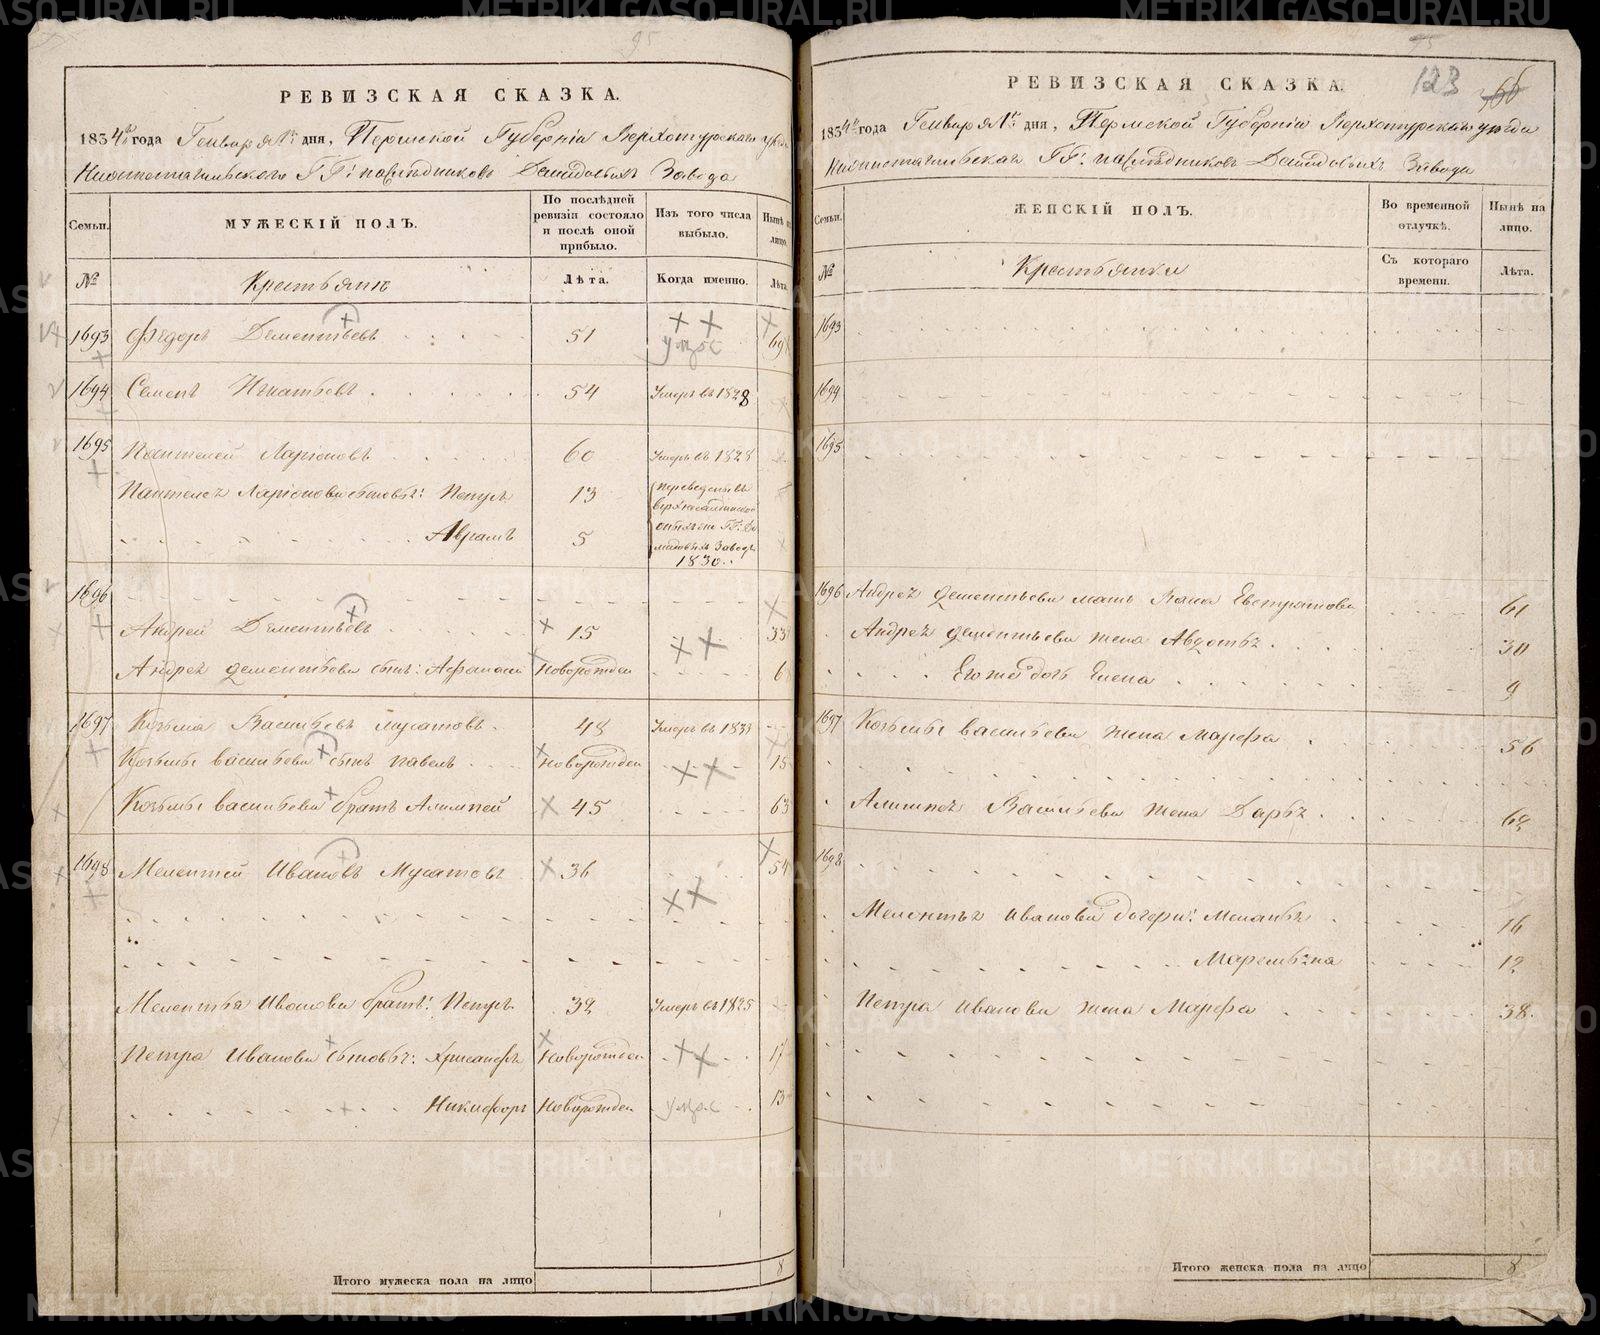 РЕВИЗСКАЯ СКАЗКА.
1834го года Генваря 1го дня, Пермской Губерніи Верхотурскаго уезда
Нижнетагильскаго ГГ: наследниковъ Демидовыхъ Завода
Семьи.
МУЖЕСКІЙ ПОЛЪ.
По послѣдней ревизіи состояло и послѣ оной прибыло.
Изъ того числа выбыло.
Нынѣ на лицо.
№
Крестьяне
Лѣта.
Когда именно.
Лѣта.
1693 Федоръ Дементьевъ 51 умре 69
1694 Семенъ Игнатьевъ 54 Умеръ въ 1828
1695 Пантелей Ларіоновъ 60 Умеръ въ 1828
Пантелея Ларіонова сыновья: Петръ 13 Переведены въ
Авраамъ 5
Заводъ 1830
1696
Андрей Дементьевъ 15 33
Андрея Дементьева сынъ: Афанасій Новорожден 6
1697 Козьма Васильевъ Мусатовъ 48 Умеръ въ 1833
Козьмы Васильева сынъ Павелъ Новорожден 15
Козьмы Васильева братъ Алимпей 45 63
1698 Мелентей Ивановъ Мусатовъ 36 54
Мелентья Иванова братъ: Петръ 32 Умеръ въ 1825
Петра Иванова сыновья: Хрисанфъ Новорожден 17
Никифоръ Новорожден умре 13
Итого мужеска пола на лицо 8
РЕВИЗСКАЯ СКАЗКА.
123
1834го года Генваря 1го дня, Пермской Губерніи Верхотурскаго уезда
Нижнетагильскаго ГГ: наследниковъ Демидовыхъ Завода
Семьи.
ЖЕНСКІЙ ПОЛЪ.
Во временной отлучкѣ.
Нынѣ на лицо.
№
Крестьянки
Съ котораго времени.
Лѣта.
1693
1694
1695
1696 Андрея Дементьева мать Евстратова 61
Андрея Дементьева жена Авдотья 30
Его же дочь Елена 9
1697 Козьмы Васильева жена Марфа 56
Алимпея Васильева жена Дарья 62
1698
Мелентья Иванова дочери: Меланья 16
Маремьяна 12
Петра Иванова жена Марфа 38.
Итого женска пола на лицо 8
METRIKI.GASO-URAL.RU